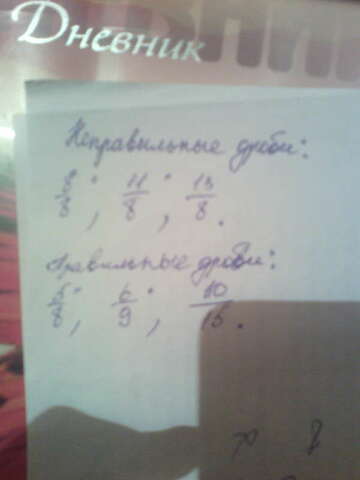 Дневник
Неправильные дроби:
11/8; 13/8.
Правильные дроби:
6/9; 10/15.